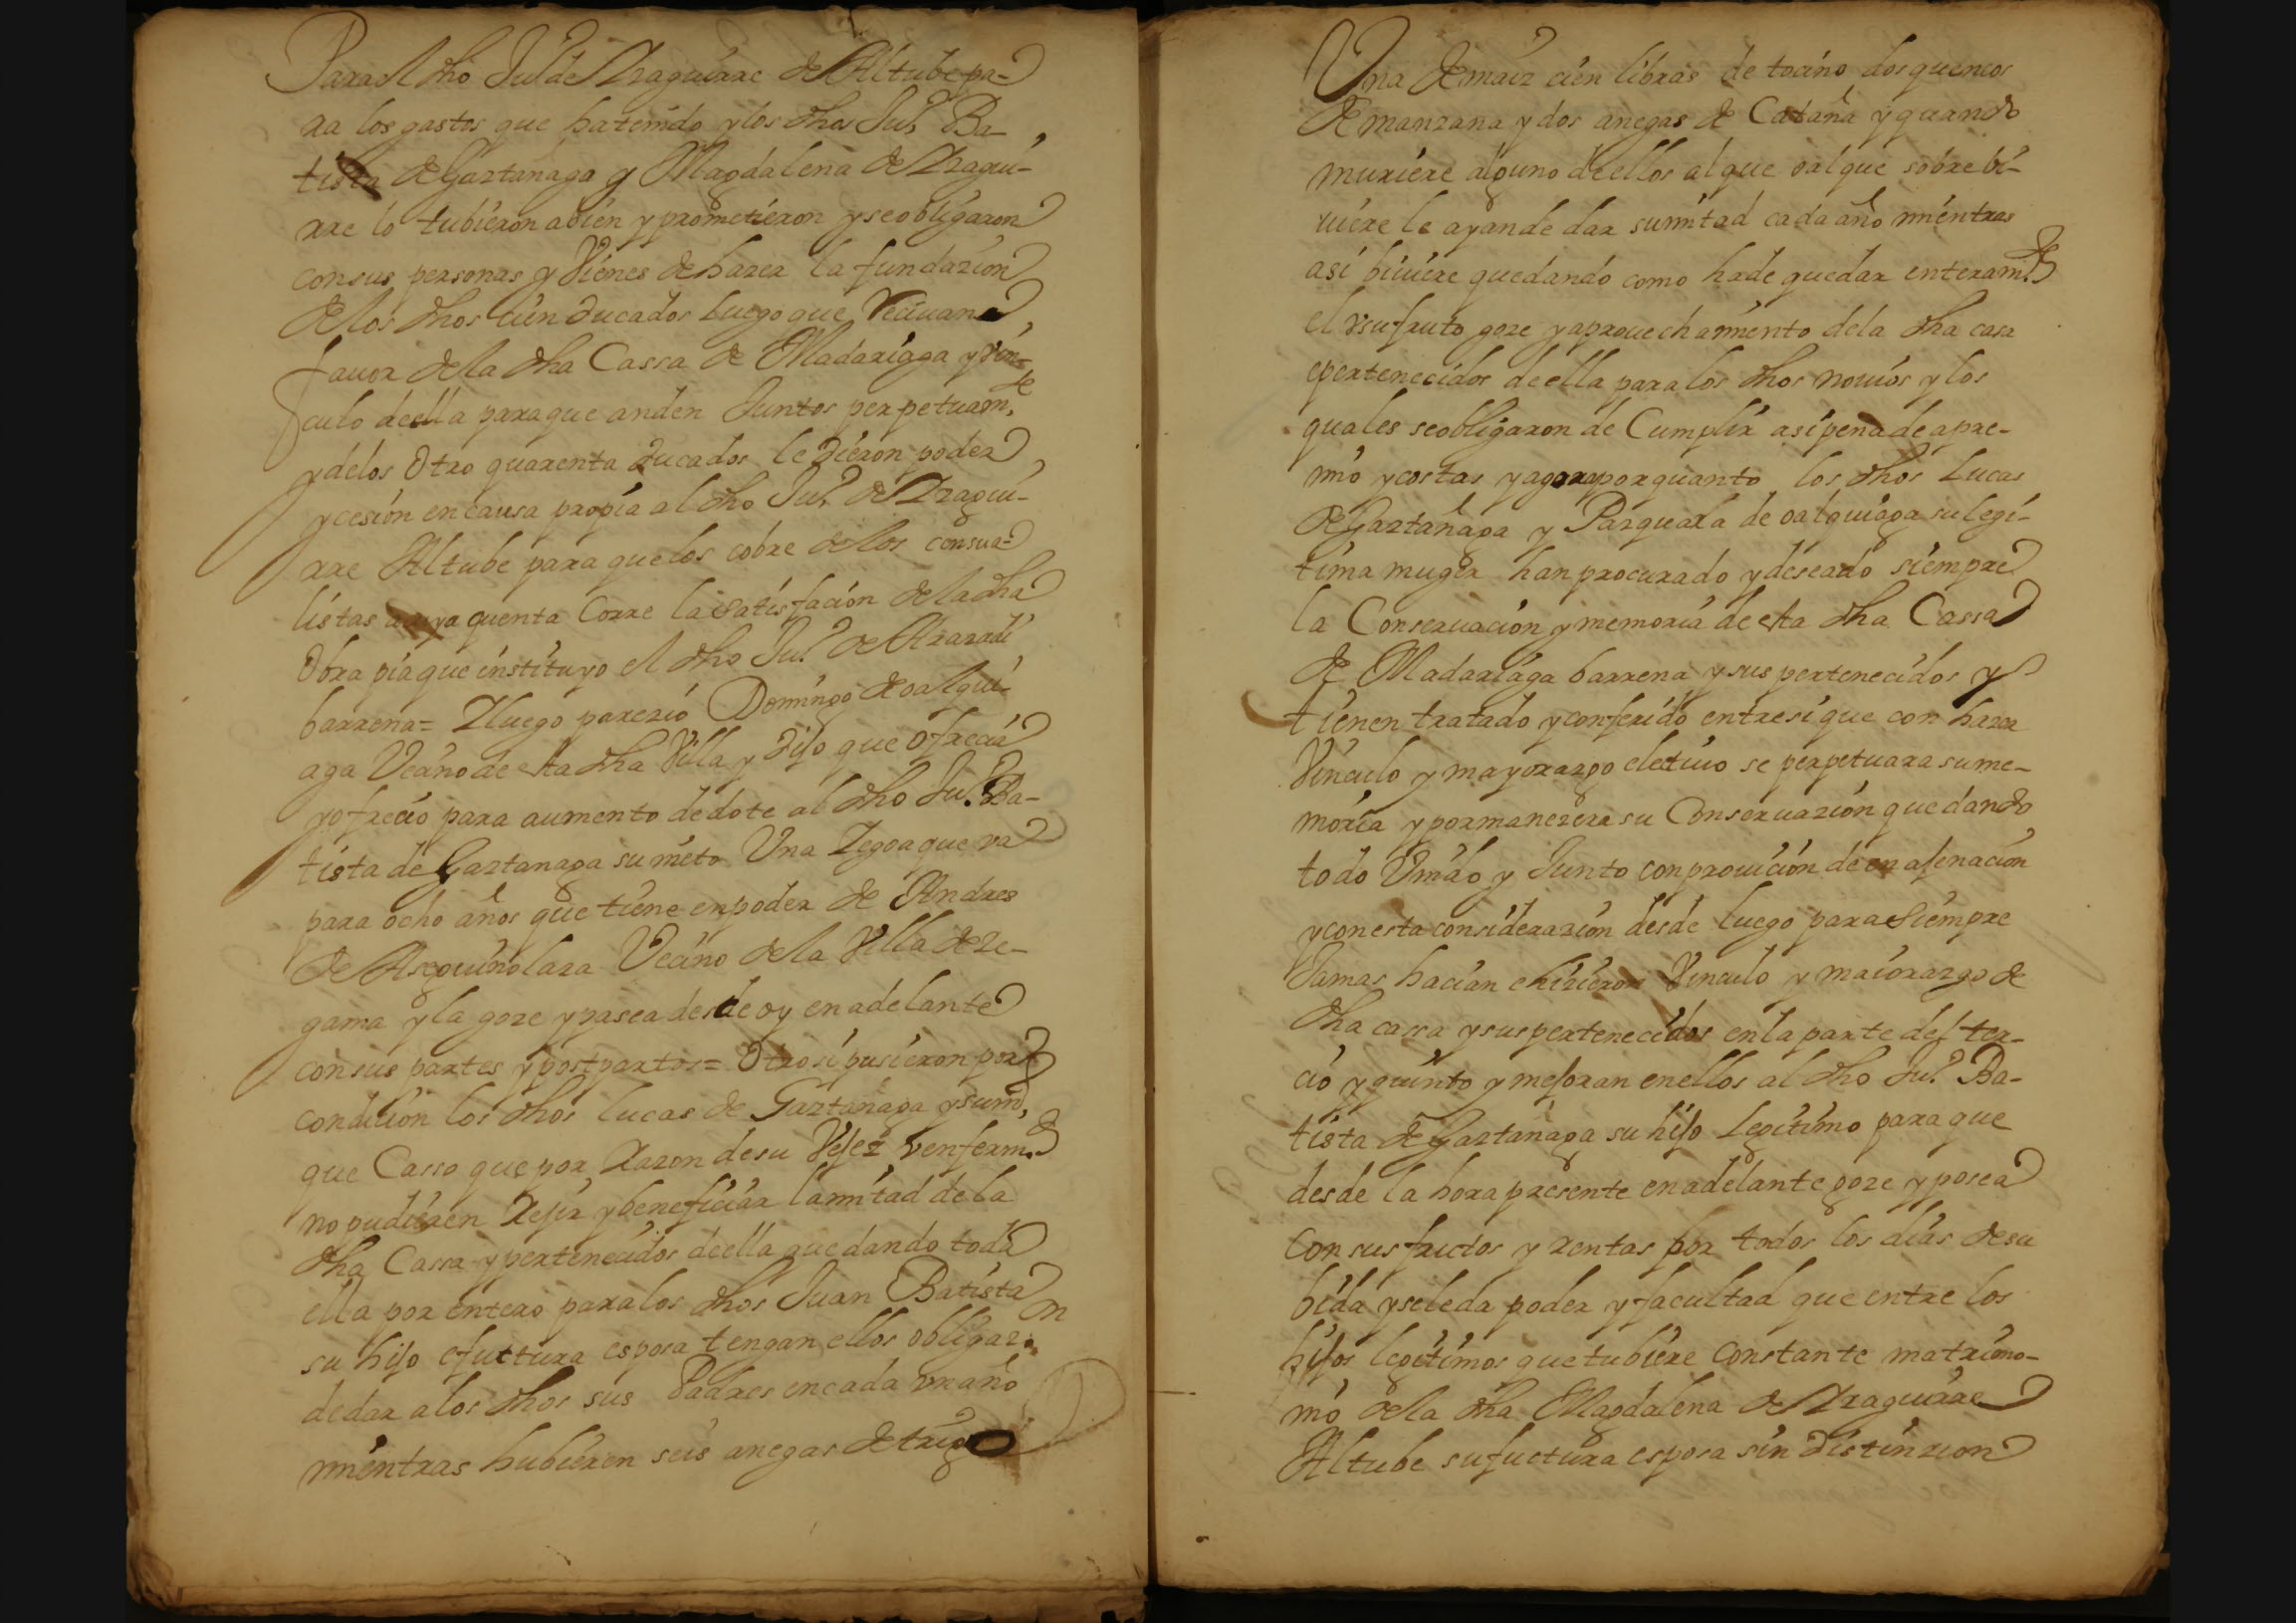 Para el dho Ju.o de Yraguirre de Altube pa-
ra los gastos que ha tenido y los dhos Ju.o Ba-
tista de Gaztanaga y Magdalena de Yragui-
rre lo tubieron a bien y prometieron y se obligaron
con sus personas y Vienes de hazer la fundazion
de los dhos cien ducados luego que Reciuan a
fauor de la dha Cassa de Madariaga y Vin-
culo de ella para que anden Juntos perpetuam.te
y de los Otro quarenta ducados le dieron poder
y cesion en causa propia al dho Ju.o de Yragui-
rre Altube para que los cobre de los
listas a cuya quenta Corre la satisfacion de la dha
Obra pia que instituyo el dho Ju.o de
barrena = Y luego parezio Domingo de oalqui-
aga Vecino de esta dha Villa y dijo que ofrecia
y ofrecio para aumento de dote al dho Ju.o Ba-
tista de Gaztanaga su nieto Una Yegoa que va
para ocho años que tiene en poder de Andres
de Aseguinolaza Vecino de la Villa de Ze-
gama y la goze y posea desde oy en adelante
con sus partes y postpartos = Otro si pusieron por
condicion los dhos Lucas de Gaztanaga y su m.r
que Casso que por Razon de su Vejez y enferm.d
no pudieren Rejir y beneficiar la mitad de la
dha Cassa y pertenecidos de ella quedando toda
ella por entero para los dhos Juan Batista
su hijo e futtura esposa tengan ellos obligaz.on
de dar a los dhos sus Padres en cada un año
mientras bibieren seis anegas de trigo
Una de maiz cien libras de tocino dos quencos
de manzana y dos anegas de Cataña y quando
muriere alguno de ellos al que oal que sobrebi-
uiere le ayan de dar su mitad cada año mientras
asi biuiere quedando como ha de quedar enteram.te
el usufruto goze y aprouechamiento de la dha casa
e pertenecidos de ella para los dhos nouios y los
quales se obligaron de Cumplir asi pena de apre-
mio y costas y agora por quanto los dhos Lucas
de Gaztañaga y Pasquala de oalquiaga su legi-
tima muger han procurado y deseado siempre
la Conseruacion y memoria de esta dha Cassa
de Madariaga barrena y sus pertenecidos y
tienen tratado y conferido entre si que con hazer
Vinculo y mayorazgo electiuo se perpetuara su me-
moria y permanezera su Conseruazion quedando
todo Unido y Junto con prouicion de enajenacion
y con esta considerazion desde luego para siempre
Jamas hacian e hizieron Vinculo y maiorazgo de
dha cassa y sus pertenecidos en la parte del ter-
cio y quinto y mejoran en ellos al dho Ju.o Ba-
tista de Gaztañaga su hijo legitimo para que
desde la hora presente en adelante goze y posea
con sus fructos y rentas por todos los dias de su
bida y se le da poder y facultad que entre los
hijos legitimos que tubiere Constante matrimo-
nio de la dha Magdalena de Yraguirre
Altube su fuctura esposa sin distinzion